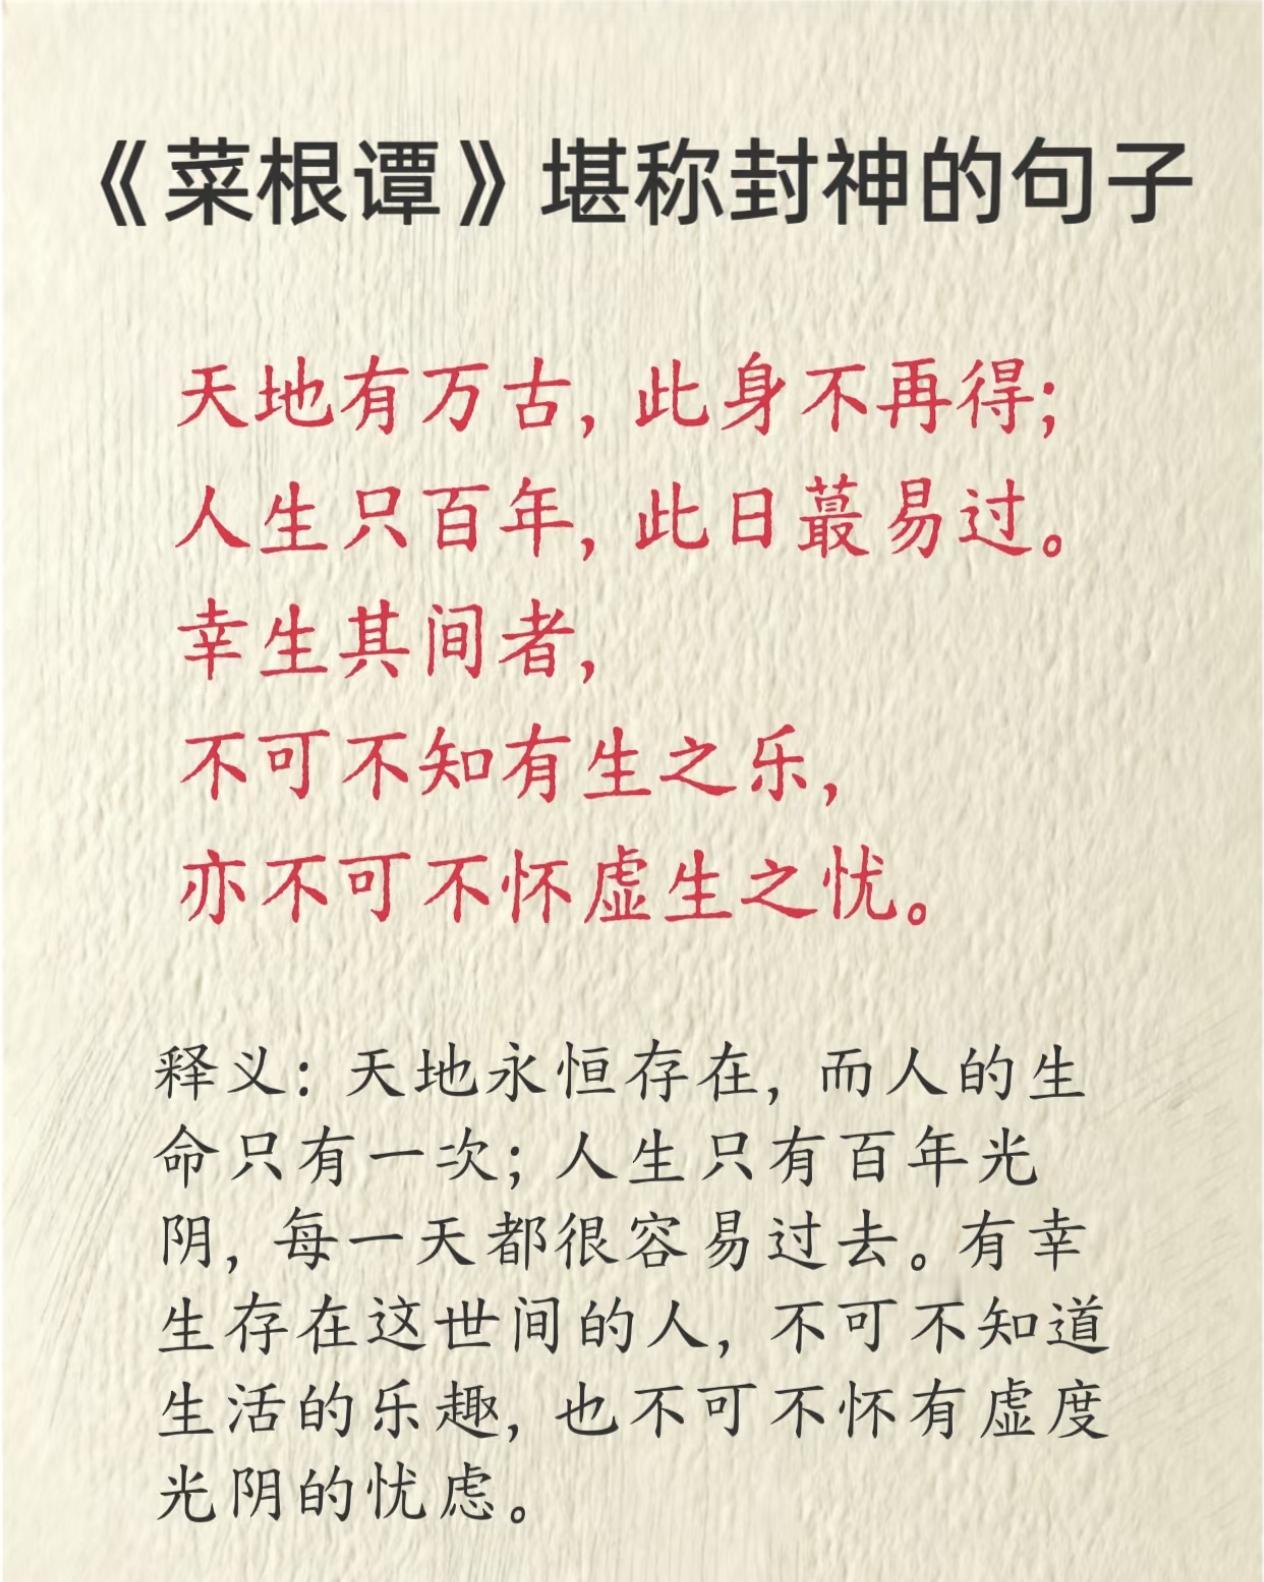 《菜根谭》堪称封神的句子
天地有万古，此身不再得；
人生只百年，此日蕞易过。
幸生其间者，
不可不知有生之乐，
亦不可不怀虚生之忧。
释义：天地永恒存在，而人的生
命只有一次；人生只有百年光
阴，每一天都很容易过去。有幸
生存在这世间的人，不可不知道
生活的乐趣，也不可不怀有虚度
光阴的忧虑。